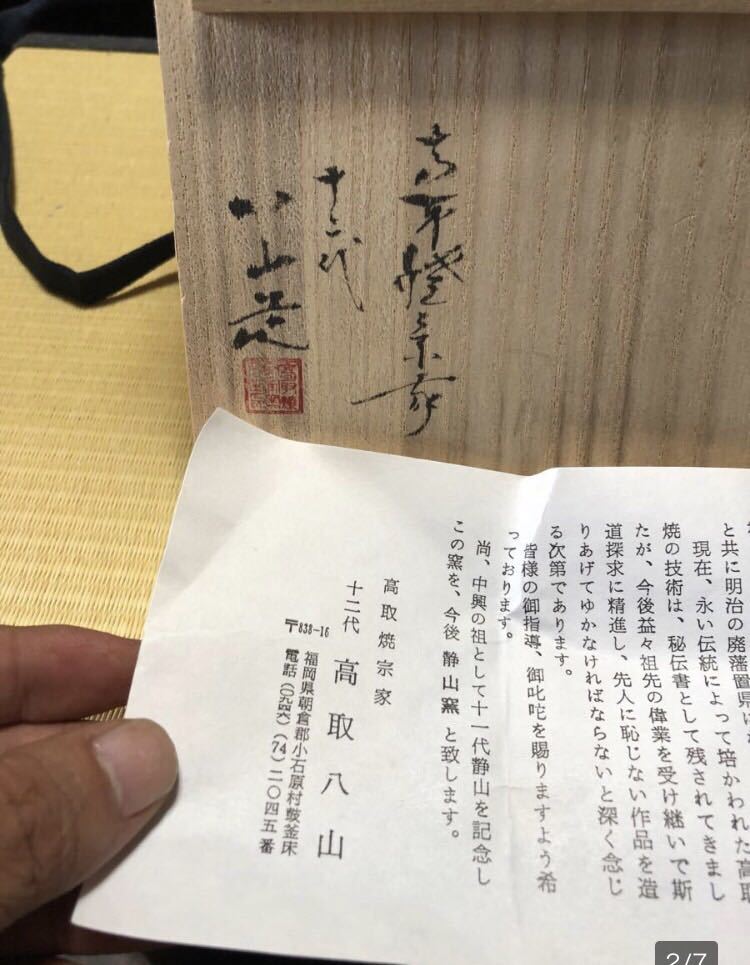 高取焼宗家
十二代
八山造
と共に明治の廃藩置県に
現在、永い伝統によって培かわれた高取
焼の技術は、秘伝書として残されてきまし
たが、今後益々祖先の偉業を受け継いで斯
道探求に精進し、先人に恥じない作品を造
りあげてゆかなければならないと深く念じ
る次第であります。
皆様の御指導、御叱咤を賜りますよう希
っております。
尚、中興の祖として十一代静山を記念し
この窯を、今後 静山窯 と致します。
高取焼宗家
十二代 高取八山
〒838-16
福岡県朝倉郡小石原村鼓釜床
電話(〇九四六)(74)二〇四五番
2/7